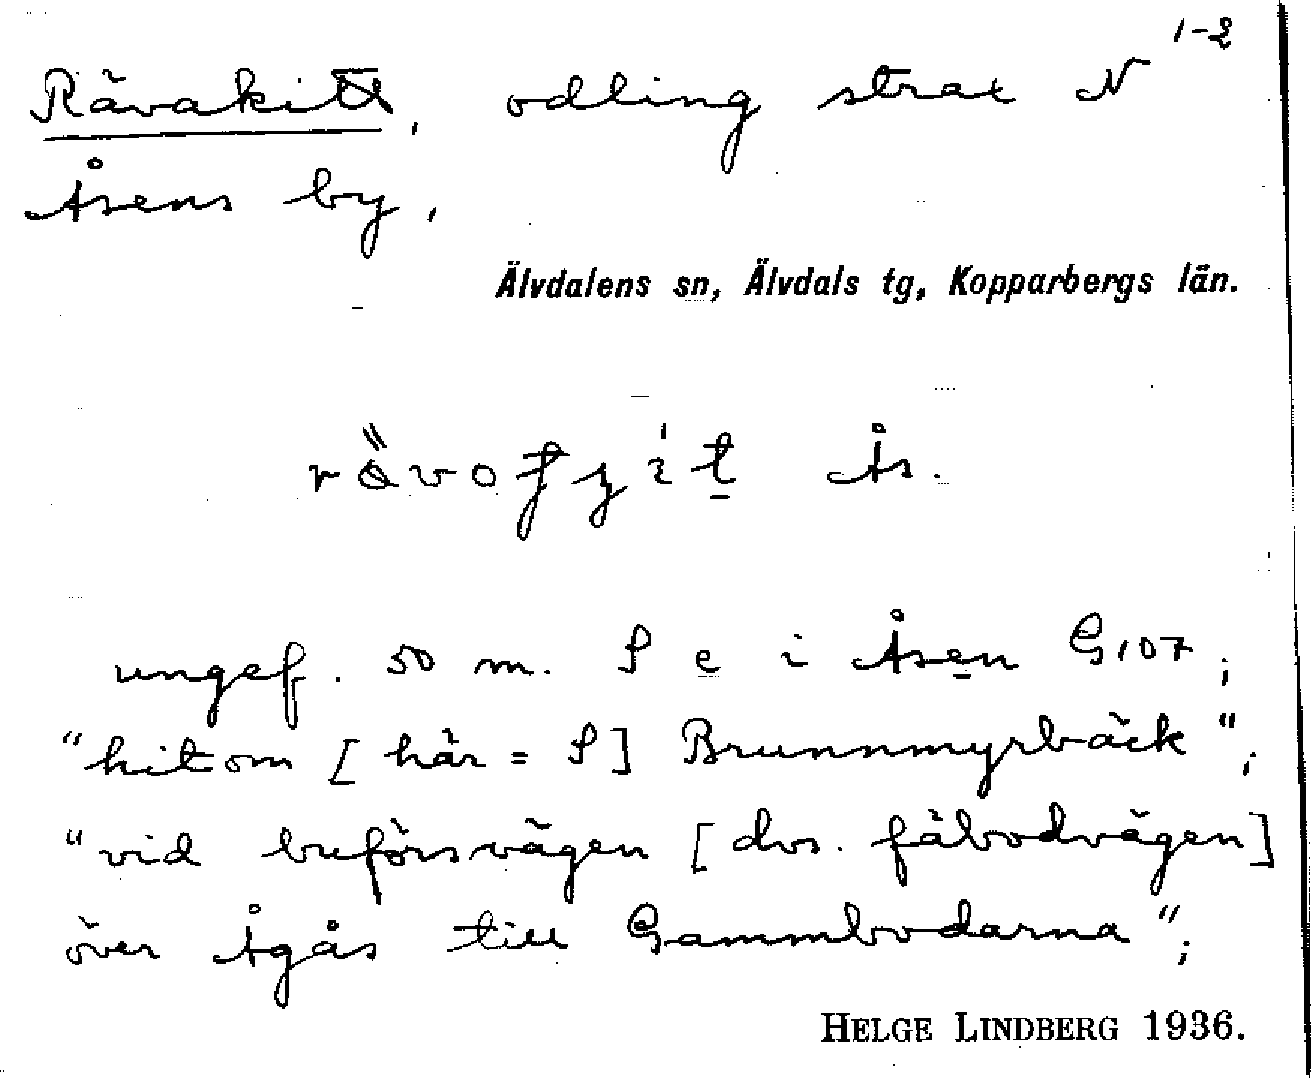 1-2
Rävakitt, odling strax N
Åsens by,
Älvdalens sn, Älvdals tg, Kopparbergs län.
Ås.
ungef. 50 m. S e i Åsen G107;
"hitom [här = S] Brunnmyrbäck";
"vid buförsvägen [dvs. fäbodvägen]
över Ågås till Gammbodarna";
HELGE LINDBERG 1936.